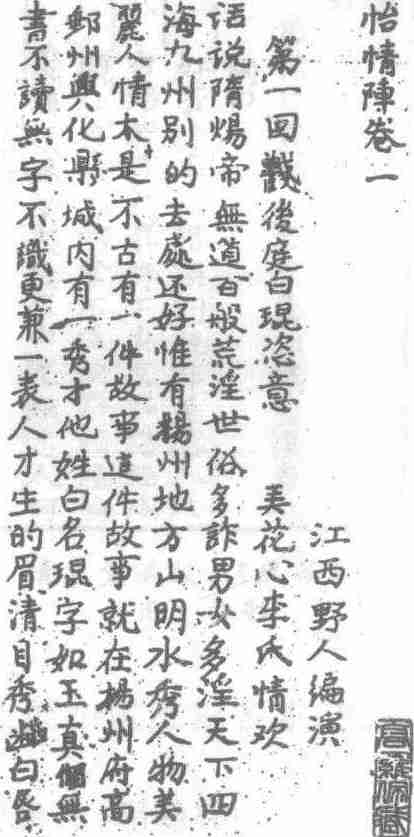 怡情陣卷一
江西野人编演
第一回觀後庭白琨恣意 弄花心李氏情欢
话说隋煬帝無道百般荒淫世俗多詐男女多淫天下四
海九州别的去處还好惟有楊州地方山明水秀人物美
麗人情太是不古有一件故事這件故事就在楊州府高
郵州興化縣城内有一秀才他姓白名琨字如玉真個無
書不讀無字不識更兼一表人才生的眉清目秀齒白唇